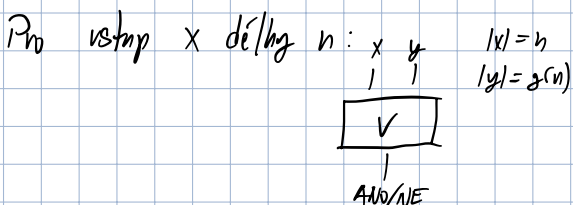 Pro vstup x délky n: x y |x|=n
|y|=g(n)
V
ANO/NE